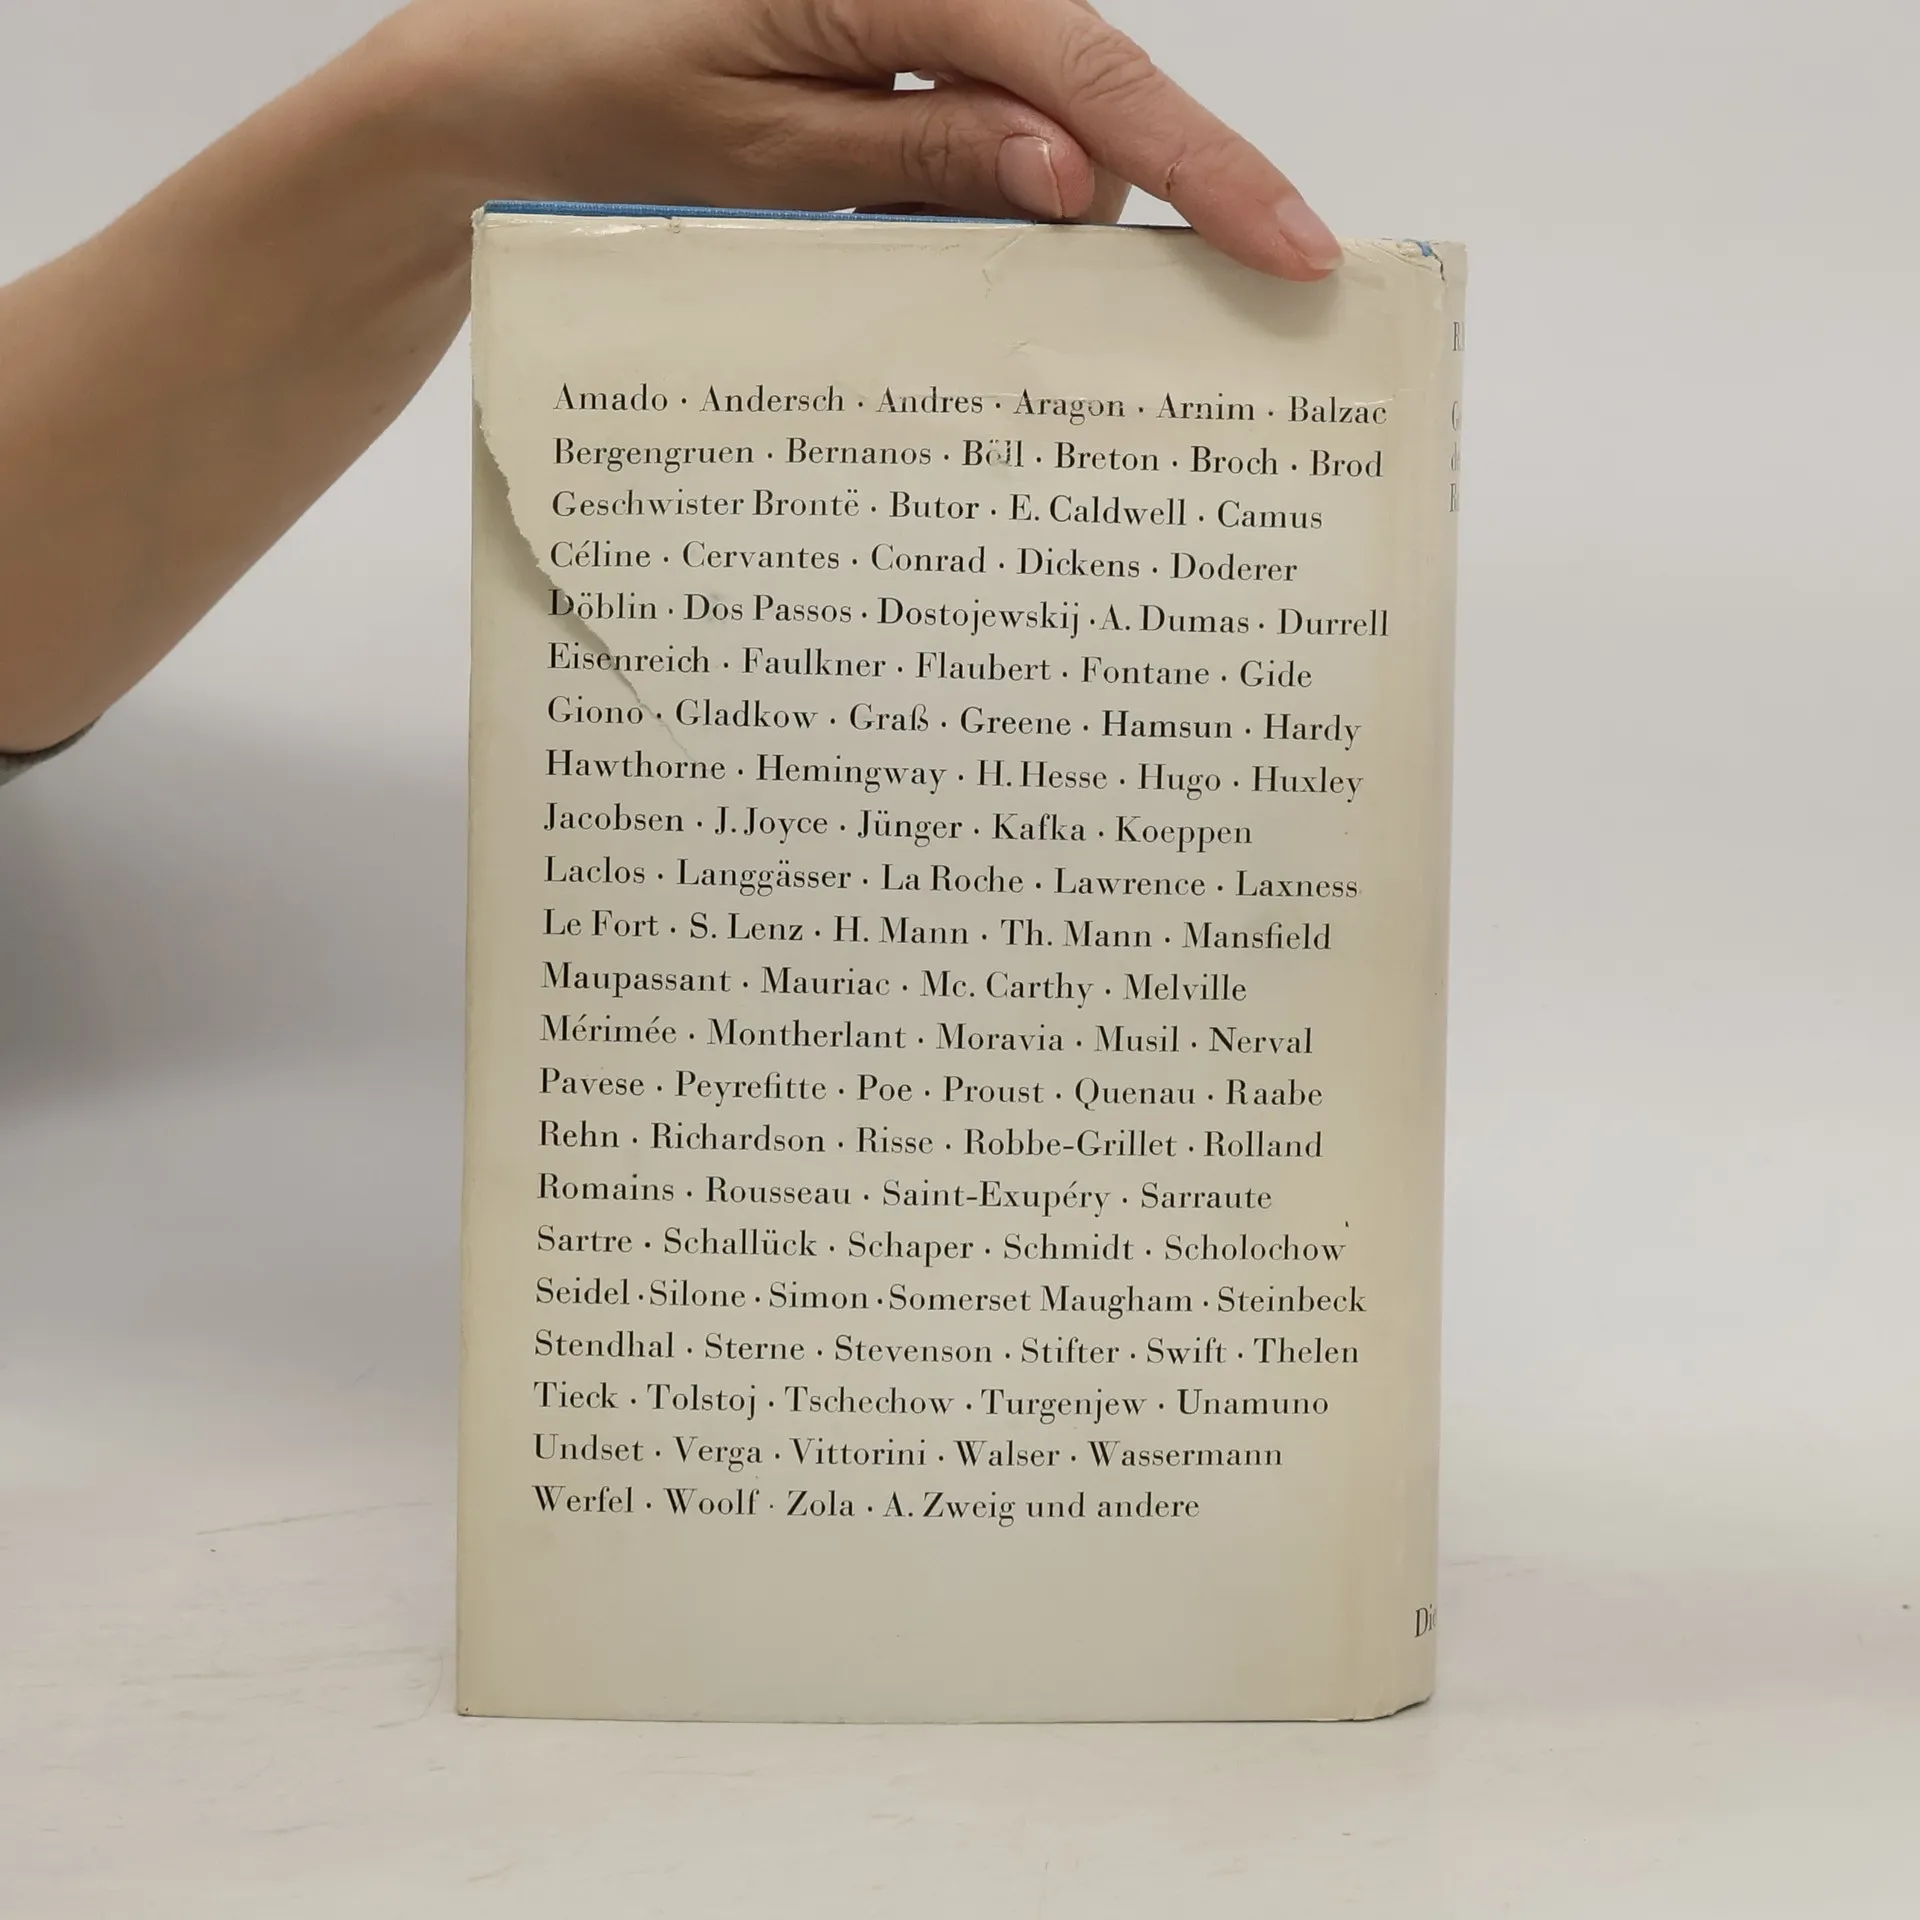 Amado · Andersch · Andres · Aragon · Arnim · Balzac
Bergengruen · Bernanos · Böll · Breton · Broch · Brod
Geschwister Brontë · Butor · E. Caldwell · Camus
Céline · Cervantes · Conrad · Dickens · Doderer
Döblin · Dos Passos · Dostojewskij · A. Dumas · Durrell
Eisenreich · Faulkner · Flaubert · Fontane · Gide
Giono · Gladkow · Graß · Greene · Hamsun · Hardy
Hawthorne · Hemingway · H. Hesse · Hugo · Huxley
Jacobsen · J. Joyce · Jünger · Kafka · Koeppen
Laclos · Langgässer · La Roche · Lawrence · Laxness
Le Fort · S. Lenz · H. Mann · Th. Mann · Mansfield
Maupassant · Mauriac · Mc. Carthy · Melville
Mérimée · Montherlant · Moravia · Musil · Nerval
Pavese · Peyrefitte · Poe · Proust · Quenau · Raabe
Rehn · Richardson · Risse · Robbe-Grillet · Rolland
Romains · Rousseau · Saint-Exupéry · Sarraute
Sartre · Schallück · Schaper · Schmidt · Scholochow
Seidel · Silone · Simon · Somerset Maugham · Steinbeck
Stendhal · Sterne · Stevenson · Stifter · Swift · Thelen
Tieck · Tolstoj · Tschechow · Turgenjew · Unamuno
Undset · Verga · Vittorini · Walser · Wassermann
Werfel · Woolf · Zola · A. Zweig und andere